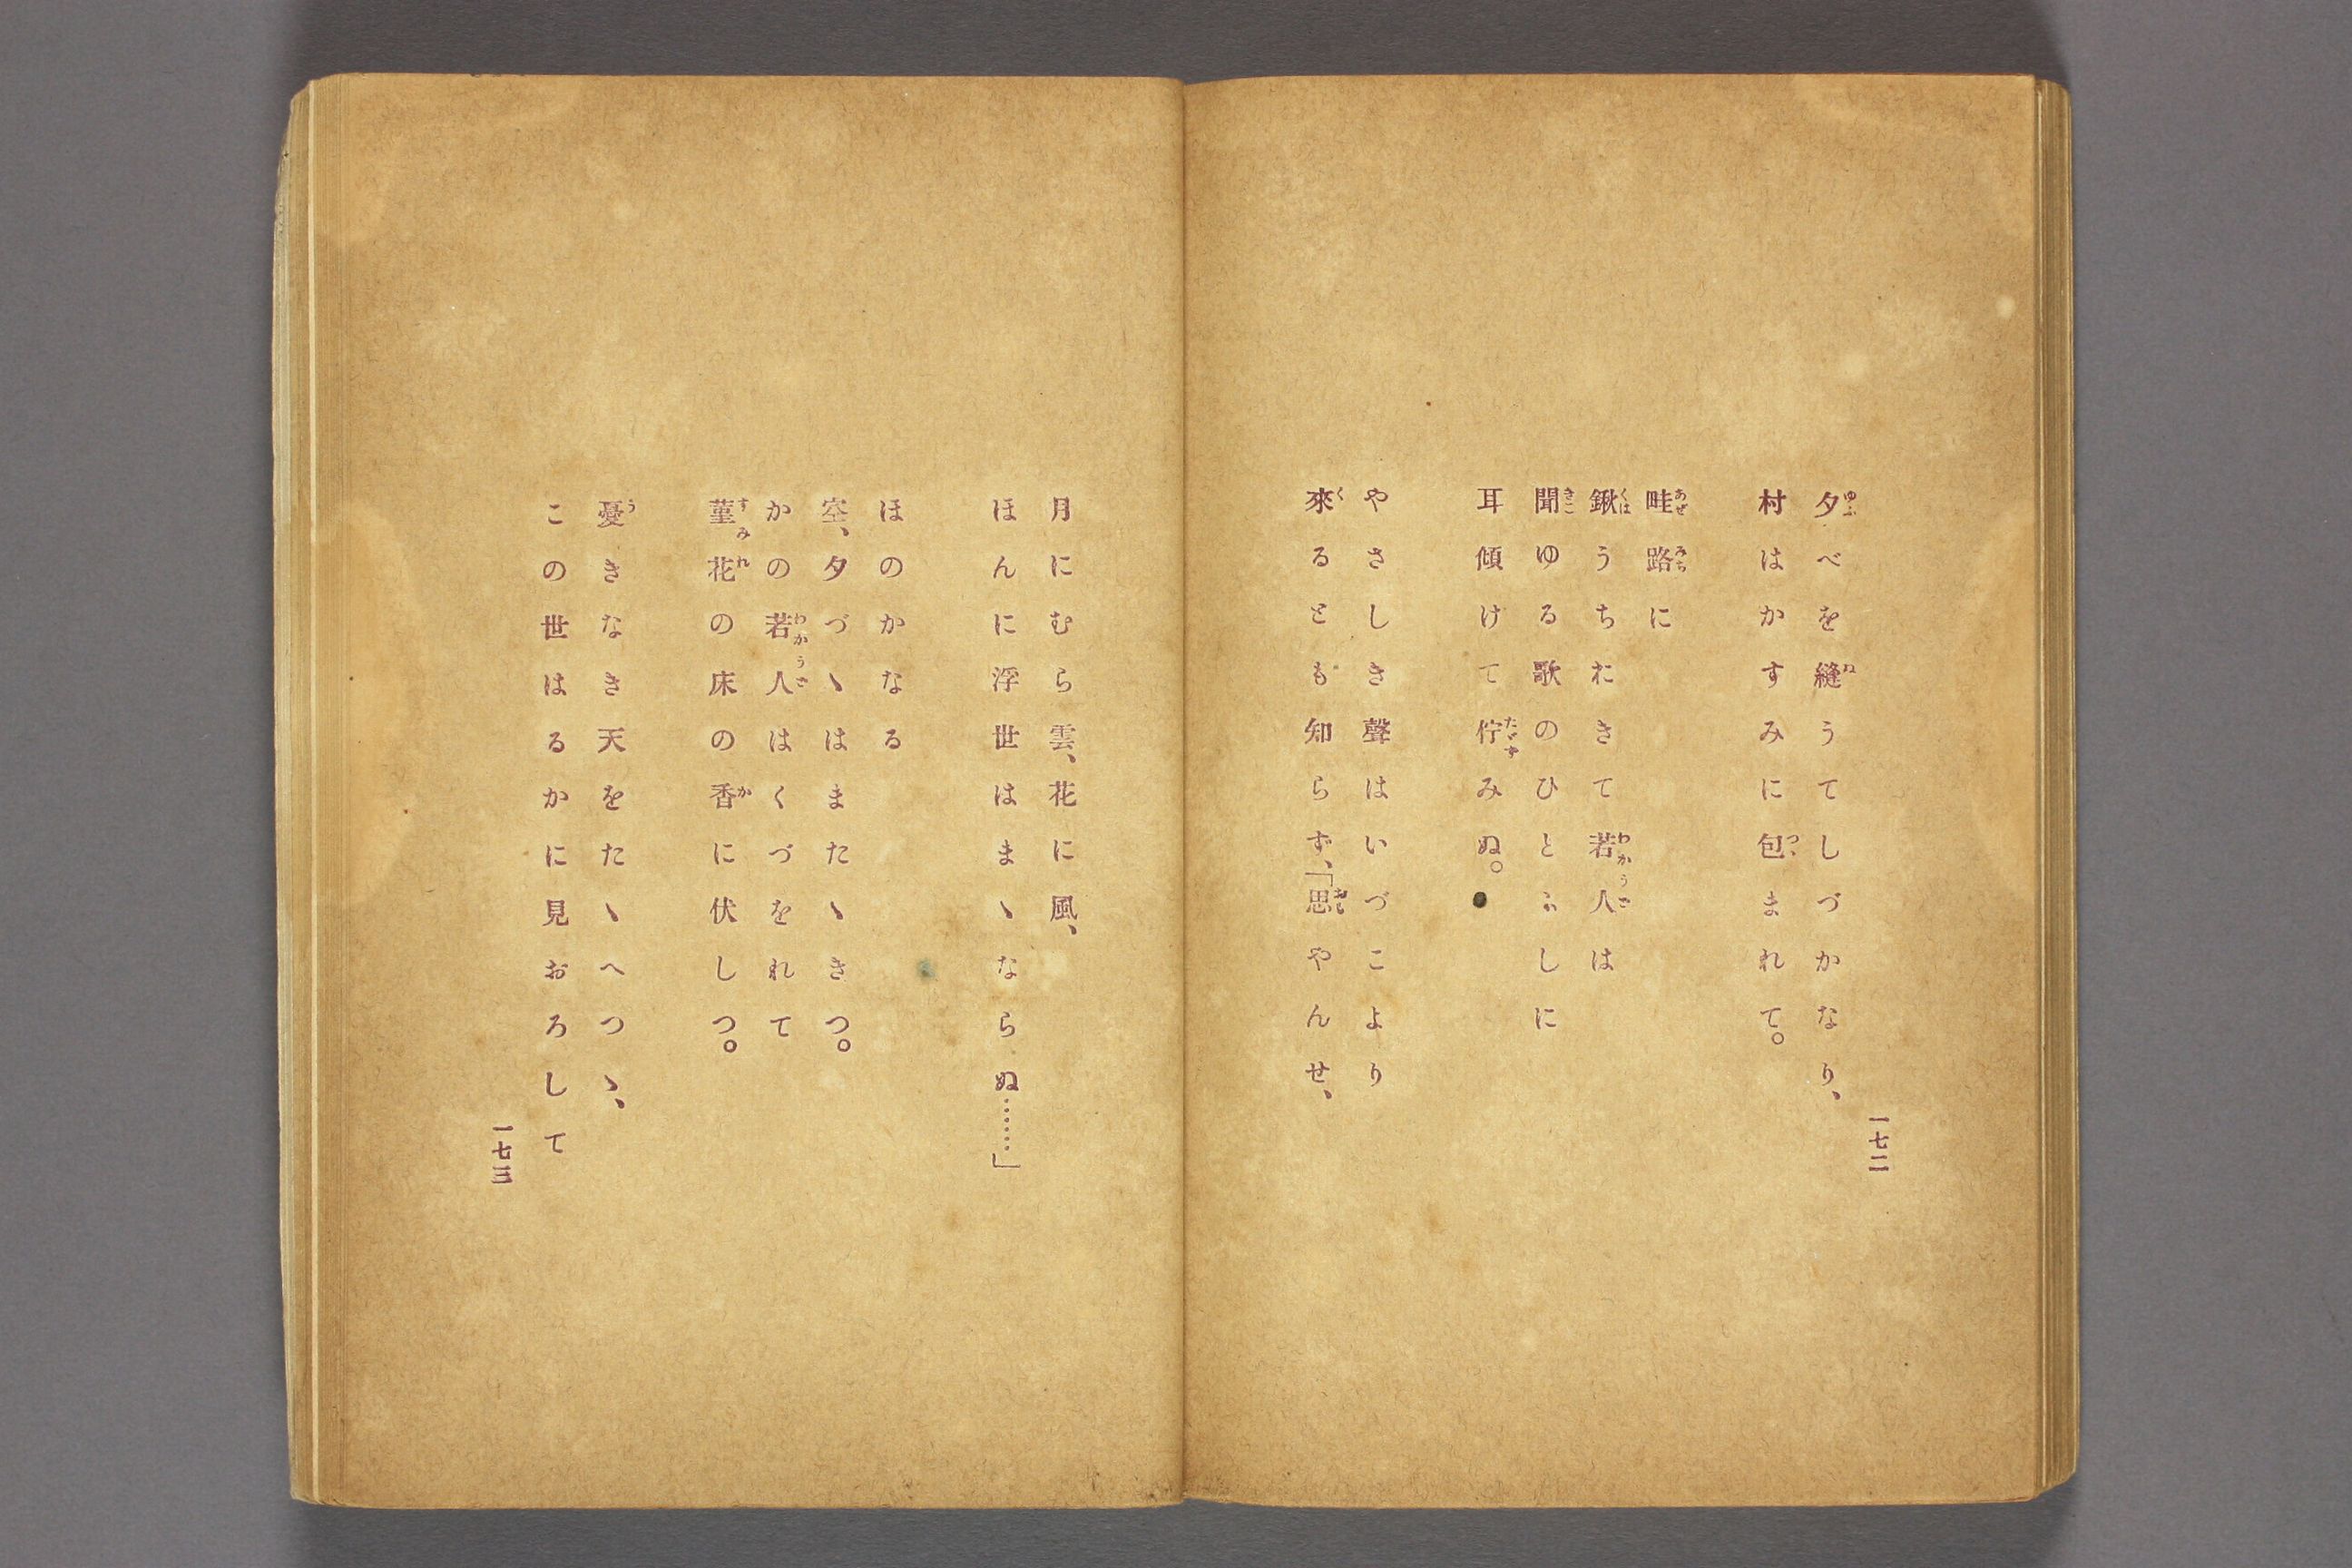 夕べを縫うてしづかなり、
村はかすみに包まれて。
畦路に
鍬うちおきて若人は
聞ゆる歌のひとふしに
耳傾けて佇みぬ。
やさしき聲はいづこより
來るとも知らず、「思やんせ、
一七二
月にむら雲、花に風、
ほんに浮世はまゝならぬ……」
ほのかなる
空、夕づゝはまたゝきつ。
かの若人はくづをれて
菫花の床の香に伏しつ。
憂きなき天をたゝへつゝ、
この世はるかに見おろして
一七三